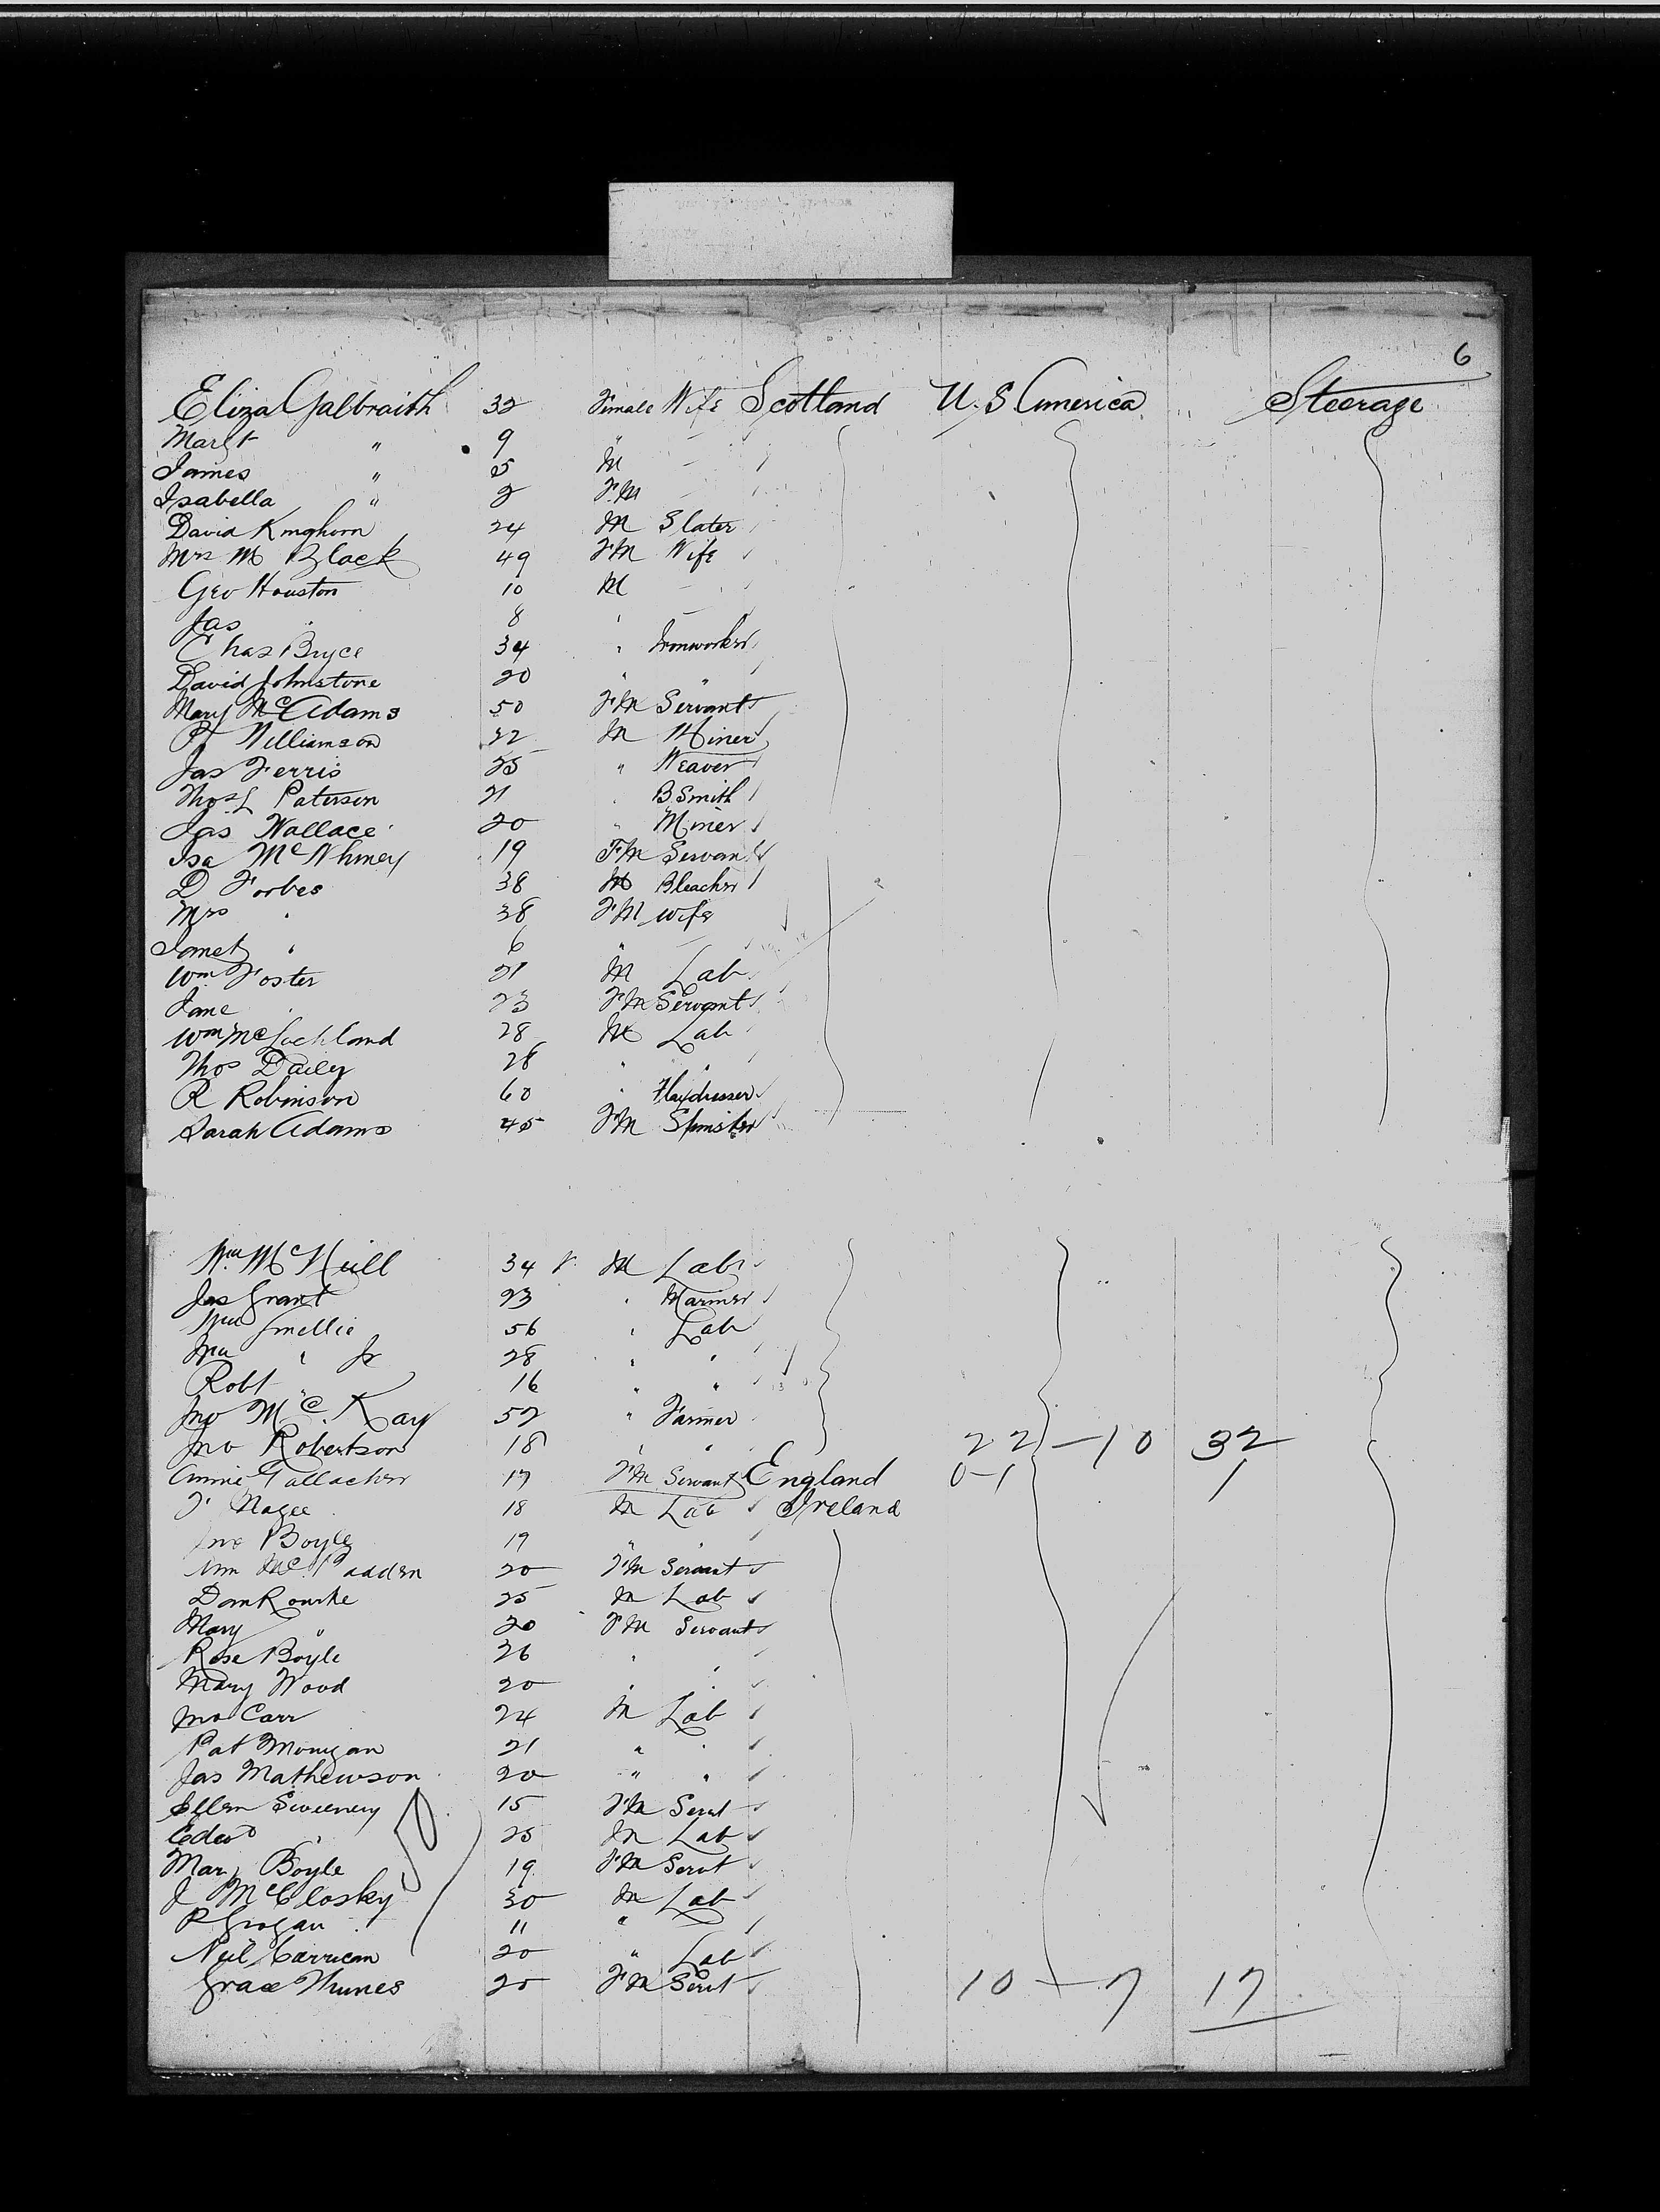 6
Eliza Galbraith 32 Female Wife Scotland U.S America Steerage
Margt " 9 "
James " 5 M
Isabella " 2 FM
David Kinghorn 24 M Slater
Mrs M Black 49 FM Wife
Geo Houston 10 M
Jas " 8 "
Chas Bryce 34 " Ironworker
David Johnstone 20 " "
Mary McAdams 50 FM Servant
R Williamson 22 M Miner
Jas Ferris 25 " Weaver
Thos L Paterson 21 " B. Smith
Jas Wallace 20 " Miner
Isa McWhiney 19 FM Servant
D Forbes 38 M Bleacher
Mrs " 38 FM wife
Janet " 6 "
Wm Foster 21 M Lab
Jane " 23 FM Servant
Wm McLochland 28 M Lab
Thos Daily 28 " "
R Robinson 60 " Flaxdresser
Sarah Adams 45 FM Spinster
Wm McNeill 34 M Lab
Jas Grant 23 " Mariner
Wm Smellie 56 " Lab
Wm " Jr 28 " "
Robt " 16 " "
Jno McKay 52 " Farmer
Jno Robertson 18 " " 22 — 10 32
Annie Gallacher 17 FM Servant England 0-1 1
F Magee 18 M Lab Ireland
Jno Boyle 19 " "
Ann McFadden 20 FM Servant
Dan Rourke 25 M Lab
Mary " 20 FM Servant
Rose Boyle 26 " "
Mary Wood 20 " "
Jno Carr 24 M Lab
Pat Monigan 21 " "
Jas Mathewson 20 " "
Ellen Sweeney 15 FM Servt
Edwd " 25 M Lab
Mary Boyle 19 FM Servt
J McClosky 30 M Lab
P Grogan 11 "
Neil Carrican 20 " Lab
Grace 20 FM Servt 10 — 7 17